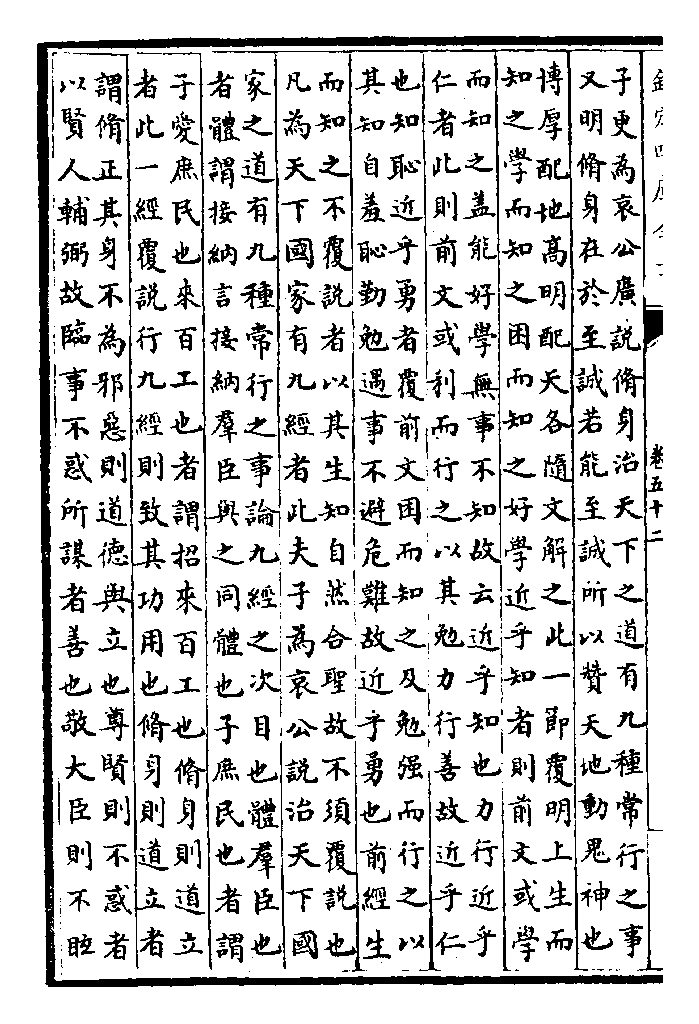 欽定四庫全書
卷五十二
子更為哀公廣說脩身治天下之道有九種常行之事
又明脩身在於至誠若能至誠所以贊天地動鬼神也
博厚配地髙明配天各隨文解之此一節覆明上生而
知之學而知之困而知之好學近乎知者則前文或學
而知之盖能好學無事不知故云近乎知也力行近乎
仁者此則前文或利而行之以其勉力行善故近乎仁
也知恥近乎勇者覆前文困而知之及勉强而行之以
其知自羞恥勤勉遇事不避危難故近乎勇也前經生
而知之不覆說者以其生知自然合聖故不須覆說也
凡為天下國家有九經者此夫子為哀公說治天下國
家之道有九種常行之事論九經之次目也體羣臣也
者體謂接納言接納羣臣與之同體也子庶民也者謂
子愛庶民也來百工也者謂招來百工也脩身則道立
者此一經覆說行九經則致其功用也脩身則道立者
謂脩正其身不為邪惡則道德興立也尊賢則不惑者
以賢人輔弼故臨事不惑所謀者善也敬大臣則不眩